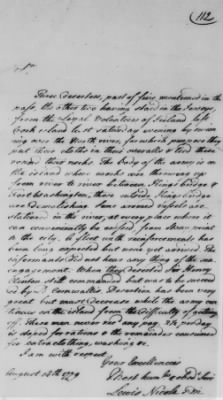 112
Sr.
Three deserters, part of five mentioned in the
pass, the other two having staid in the Jerseys
from the Loyal Volunteers of Ireland left
York island last saturday evening by swim
ing over the North river, for which purpose they
put their cloths in their overalls & tied them
round their necks. The body of the army is on
the island where works are thrown up
from river to river between Kings bridge &
Fort the old Kings bridge
are demolishing some armed vessels are
stationed in the river, at every place where it
can conveniently be crossed, from Stran point
to the A fleet with reinforcements has
been long expected but not yet arrived. The
informants did not hear any thing of the en
gagement. When they deserted Sir Henry
Clinton still commanded but was to be succeed
ed by Ld. Cornwallis. Desertion has been very
great but must decrease while the army con
tinues on the island from the difficulty of getting
off. These men never recd any pay, 2/6 per day
is stoped for rations & the remainder consumed
for extra clothing, washing &c.
I am with respect
Your Excellencies
Most humble & obedt. Sert.
August 14th 1779
Lewis Nicola